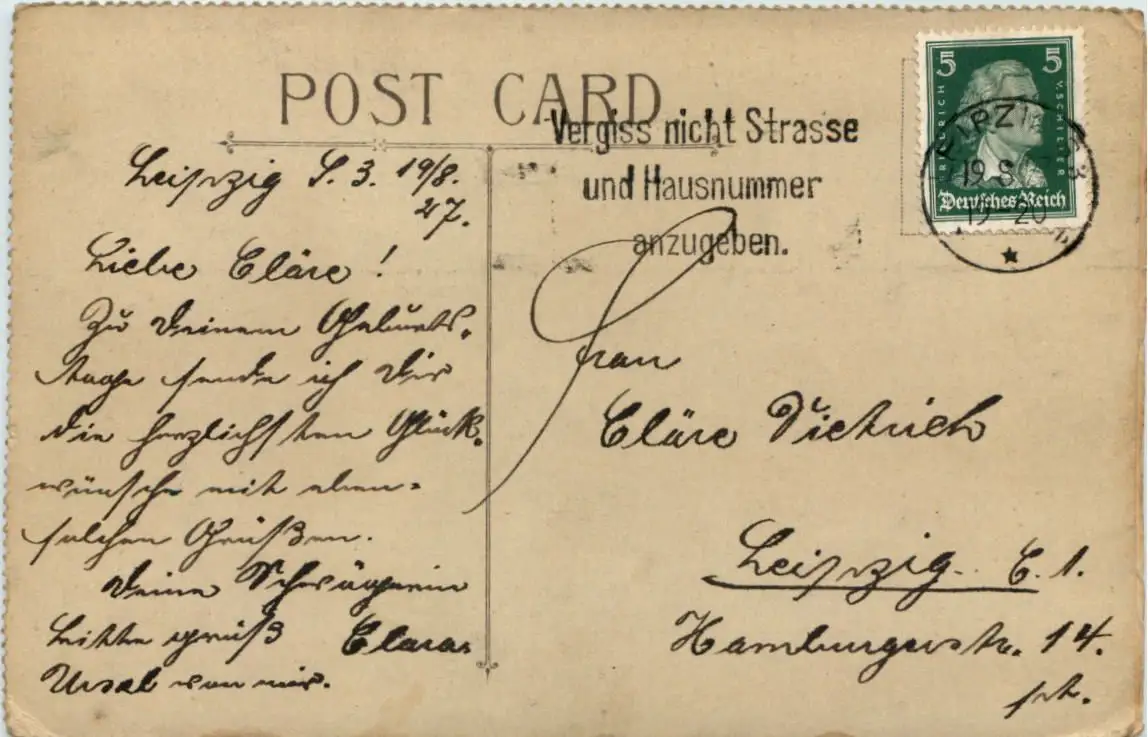 POST CARD
Vergiss nicht Strasse
und Hausnummer
anzugeben.
5 5
FRIEDRICH V. SCHILLER
Deutsches Reich
LEIPZIG
19.8.
19-20
Leipzig S. 3. 19/8.
27.
Liebe Cläre!
Zu Deinem Geburts-
tage sende ich Dir
die herzlichsten Glück-
wünsche mit eben-
solchen Grüßen.
Deine Schwägerin
Clara.
Bitte grüß
Ursel von mir.
Frau
Cläre Dietrich
Leipzig. C. 1.
Hamburgerstr. 14.